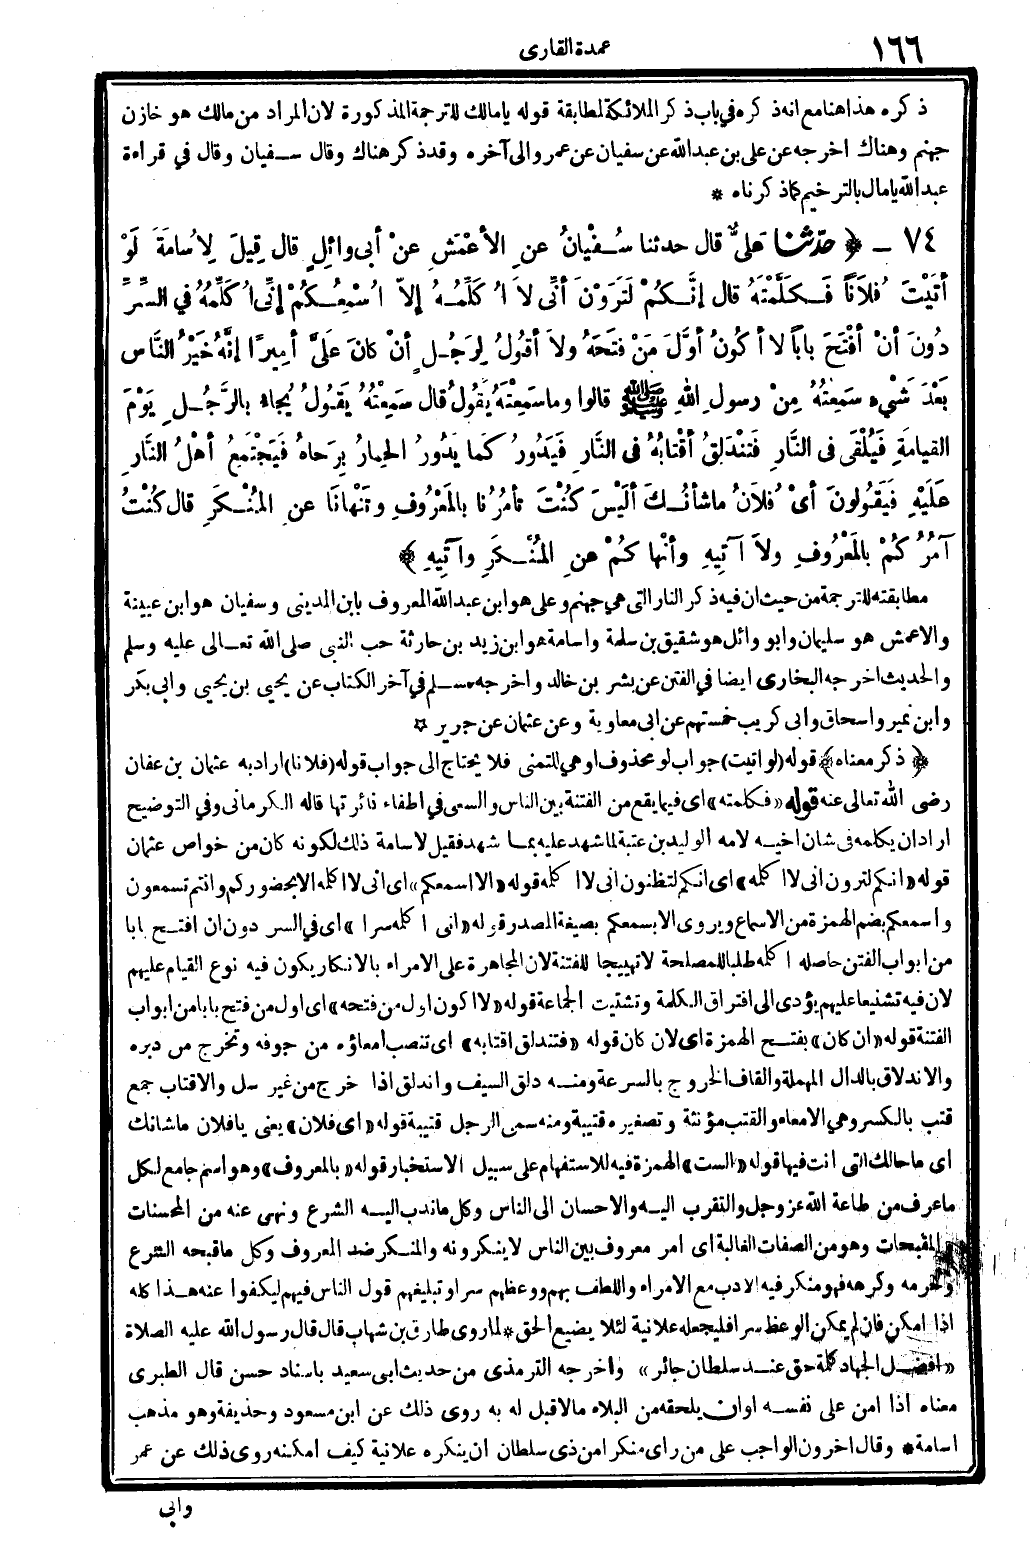 ١٦٦
عمدة القارى
ذكره هذا هنا مع انه ذكره في باب ذكر الملائكة لمطابقة قوله يا مالك للترجمة المذكورة لان المراد من مالك هو خازن
جهنم وهناك اخرجه عن على بن عبدالله عن سفيان عن عمرو الى آخره وقد ذكر هناك وقال سفيان وقال في قراءة
عبدالله يا مال بالترخيم كما ذكرناه *
٧٤ ـ ﴿ حدّثنا عَلىٌّ قال حدثنا سُفْيانُ عنِ الأعْمَشِ عنْ أبى وائِلٍ قال قِيلَ لِأُسامَةَ لَوْ
أتَيْتَ فُلاَناً فَكلَّمْتَهُ قال إنَّكُمْ لَتَرَوْنَ أنِّى لاَ أُكَلِّمُهُ إلاّ أُسْمِعُكُمْ إنِّى أُكَلِّمُهُ في السِّرِّ
دُونَ أنْ أفْتَحَ باباً لا أكُونُ أوَّلَ مَنْ فتَحَهُ ولاَ أقُولُ لِرَجُلٍ أنْ كانَ عَلَىَّ أمِيرًا إنَّهُ خَيْرُ النَّاس
بَعْدَ شَيْءٍ سَمِعْتُهُ مِنْ رسولِ اللهِ ﷺ قالوا وما سَمِعْتَهُ يَقُولُ قال سَمِعْتُهُ يَقُولُ يُجاءُ بالرَّجُلِ يَوْمَ
القيامَةِ فَيُلْقَى فى النَّارِ فَتَنْدَلِقُ أقْتابُهُ فى النَّارِ فَيَدُورُ كَما يَدُورُ الحِمارُ بِرَحاهُ فَيَجْتَمِعُ أهْلُ النَّارِ
عَلَيْهِ فَيَقُولونَ أىْ فُلاَنُ ما شأنُكَ ألَيْسَ كُنْتَ تأمُرُنا بالمَعْرُوفِ وتَنْهانَا عنِ المُنْكَرِ قال كُنْتُ
آمُرُكُمْ بالمَعْرُوفِ ولاَ آتِيهِ وأنْهاكُمْ عنِ المُنْكَرِ وآتِيهِ ﴾
مطابقته للترجمة من حيث ان فيه ذكر النار التى هي جهنم وعلى هو ابن عبدالله المعروف بابن المدينى وسفيان هو ابن عيينة
والاعمش هو سليمان وابو وائل هو شقيق بن سلمة واسامة هو ابن زيد بن حارثة حب النبى صلى الله تعالى عليه وسلم
والحديث اخرجه البخارى ايضا في الفتن عن بشر بن خالد واخرجه مسلم في آخر الكتاب عن يحيى بن يحيى وابى بكر
وابن نمير واسحاق وابى كريب خمستهم عن ابى معاوية وعن عثمان عن جرير *
﴿ ذكر معناه ﴾ قوله (لو اتيت) جواب لو محذوف او هي للتمنى فلا يحتاج الى جواب قوله (فلانا) اراد به عثمان بن عفان
رضى الله تعالى عنه قوله «فكلمته» اى فيما يقع من الفتنة بين الناس والسعى في اطفاء نائرتها قاله الكرمانى وفي التوضيح
اراد ان يكلمه فى شان اخيه لامه الوليد بن عتبة لما شهد عليه بما شهد فقيل لاسامة ذلك لكونه كان من خواص عثمان
قوله «انكم لترون انى لا اكلمه» اى انكم لتظنون انى لا اكلمه قوله «الا اسمعكم» اى انى لا اكلمه الا بحضوركم وانتم تسمعون
واسمعكم بضم الهمزة من الاسماع ويروى الا بسمعكم بصيغة المصدر قوله «انى اكلمه سرا» اى في السر دون ان افتح بابا
من ابواب الفتن حاصله اكلمه طلبا للمصلحة لا تهييجا للفتنة لان المجاهرة على الامراء بالانكار يكون فيه نوع القيام عليهم
لان فيه تشنيعا عليهم يؤدى الى افتراق الكلمة وتشتيت الجماعة قوله «لا اكون اول من فتحه» اى اول من فتح بابا من ابواب
الفتنة قوله «ان كان» بفتح الهمزة اى لان كان قوله «فتندلق اقتابه» اى تنصب امعاؤه من جوفه وتخرج من دبره
والاندلاق بالدال المهملة والقاف الخروج بالسرعة ومنه دلق السيف واندلق اذا خرج من غير سل والاقتاب جمع
قتب بالكسر وهي الامعاء والقتب مؤنثة وتصغيره قتيبة ومنه سمى الرجل قتيبة قوله «اى فلان» يعنى يا فلان ما شانك
اى ما حالك التى انت فيها قوله «الست» الهمزة فيه للاستفهام على سبيل الاستخبار قوله «بالمعروف» وهو اسم جامع لكل
ما عرف من طاعة الله عز وجل والتقرب اليه والاحسان الى الناس وكل ما ندب اليه الشرع ونهى عنه من المحسنات
والمقبحات وهو من الصفات الغالبة اى امر معروف بين الناس لا ينكرونه والمنكر ضد المعروف وكل ما قبحه الشرع
وحرمه وكرهه فهو منكر فيه الادب مع الامراء واللطف بهم ووعظهم سرا وتبليغهم قول الناس فيهم ليكفوا عنه هذا كله
اذا امكن فان لم يمكن الوعظ سرا فليجعله علانية لئلا يضيع الحق * لما روى طارق بن شهاب قال قال رسول الله عليه الصلاة
«افضل الجهاد كلمة حق عند سلطان جائر» واخرجه الترمذى من حديث ابى سعيد باسناد حسن قال الطبرى
معناه اذا امن على نفسه او ان يلحقه من البلاء مالا قبل له به روى ذلك عن ابن مسعود وحذيفة وهو مذهب
اسامة * وقال اخرون الواجب على من راى منكرا من ذى سلطان ان ينكره علانية كيف امكنه روى ذلك عن عمر
وابى